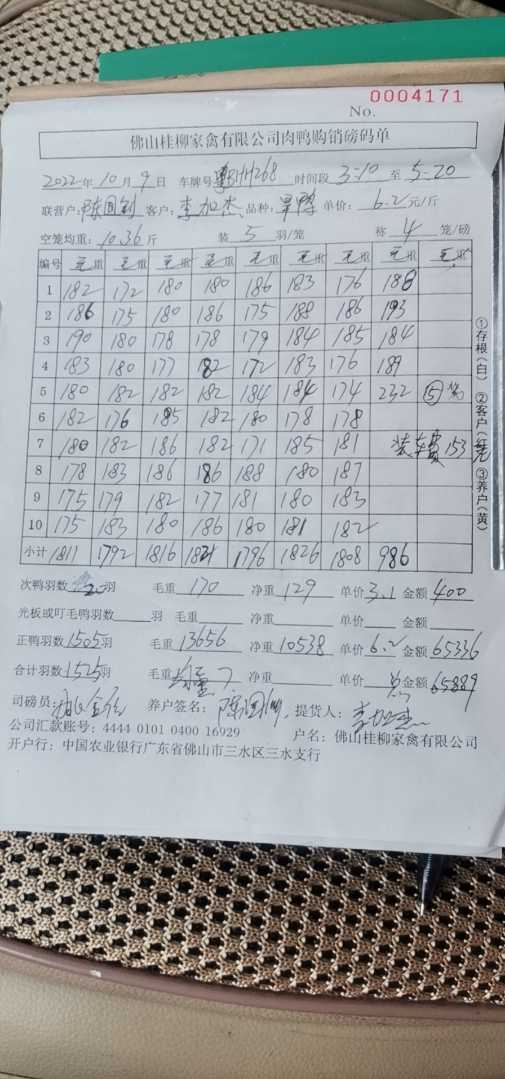 0004171
No.
佛山桂柳家禽有限公司肉鸭购销磅码单
2022年10月9日 车牌号粤BHH268 时间段3:10至5:20
联营户: 客户:李加杰 品种:旱鸭 单价:6.2元/斤
空笼均重:10.36斤 装5羽/笼 称4笼/磅
编号 毛重 毛重 毛重 毛重 毛重 毛重 毛重 毛重 毛重
1 182 172 180 180 186 183 176 188
2 186 175 180 186 175 188 186 193
3 190 180 178 178 179 184 185 184
4 183 180 177 182 172 183 176 189
5 180 182 182 182 184 184 174 232 ⑤笼
6 182 176 185 182 180 178 178
7 180 182 186 182 171 185 181 装车费153
8 178 183 186 186 188 180 187
9 175 179 182 177 181 180 183
10 175 183 180 186 180 181 182
小计 1811 1792 1816 1821 1796 1826 1808 986
①存根(白) ②客户(红) ③养户(黄)
次鸭羽数20羽 毛重170 净重129 单价3.1 金额400
光板或叮毛鸭羽数 羽 毛重 净重 单价 金额
正鸭羽数1505羽 毛重13656 净重10538 单价6.2 金额65336
合计羽数1525羽 毛重 净重 单价 总金额65889
司磅员: 养户签名: 提货人:李加杰
公司汇款账号:4444 0101 0400 16929 户名:佛山桂柳家禽有限公司
开户行:中国农业银行广东省佛山市三水区三水支行